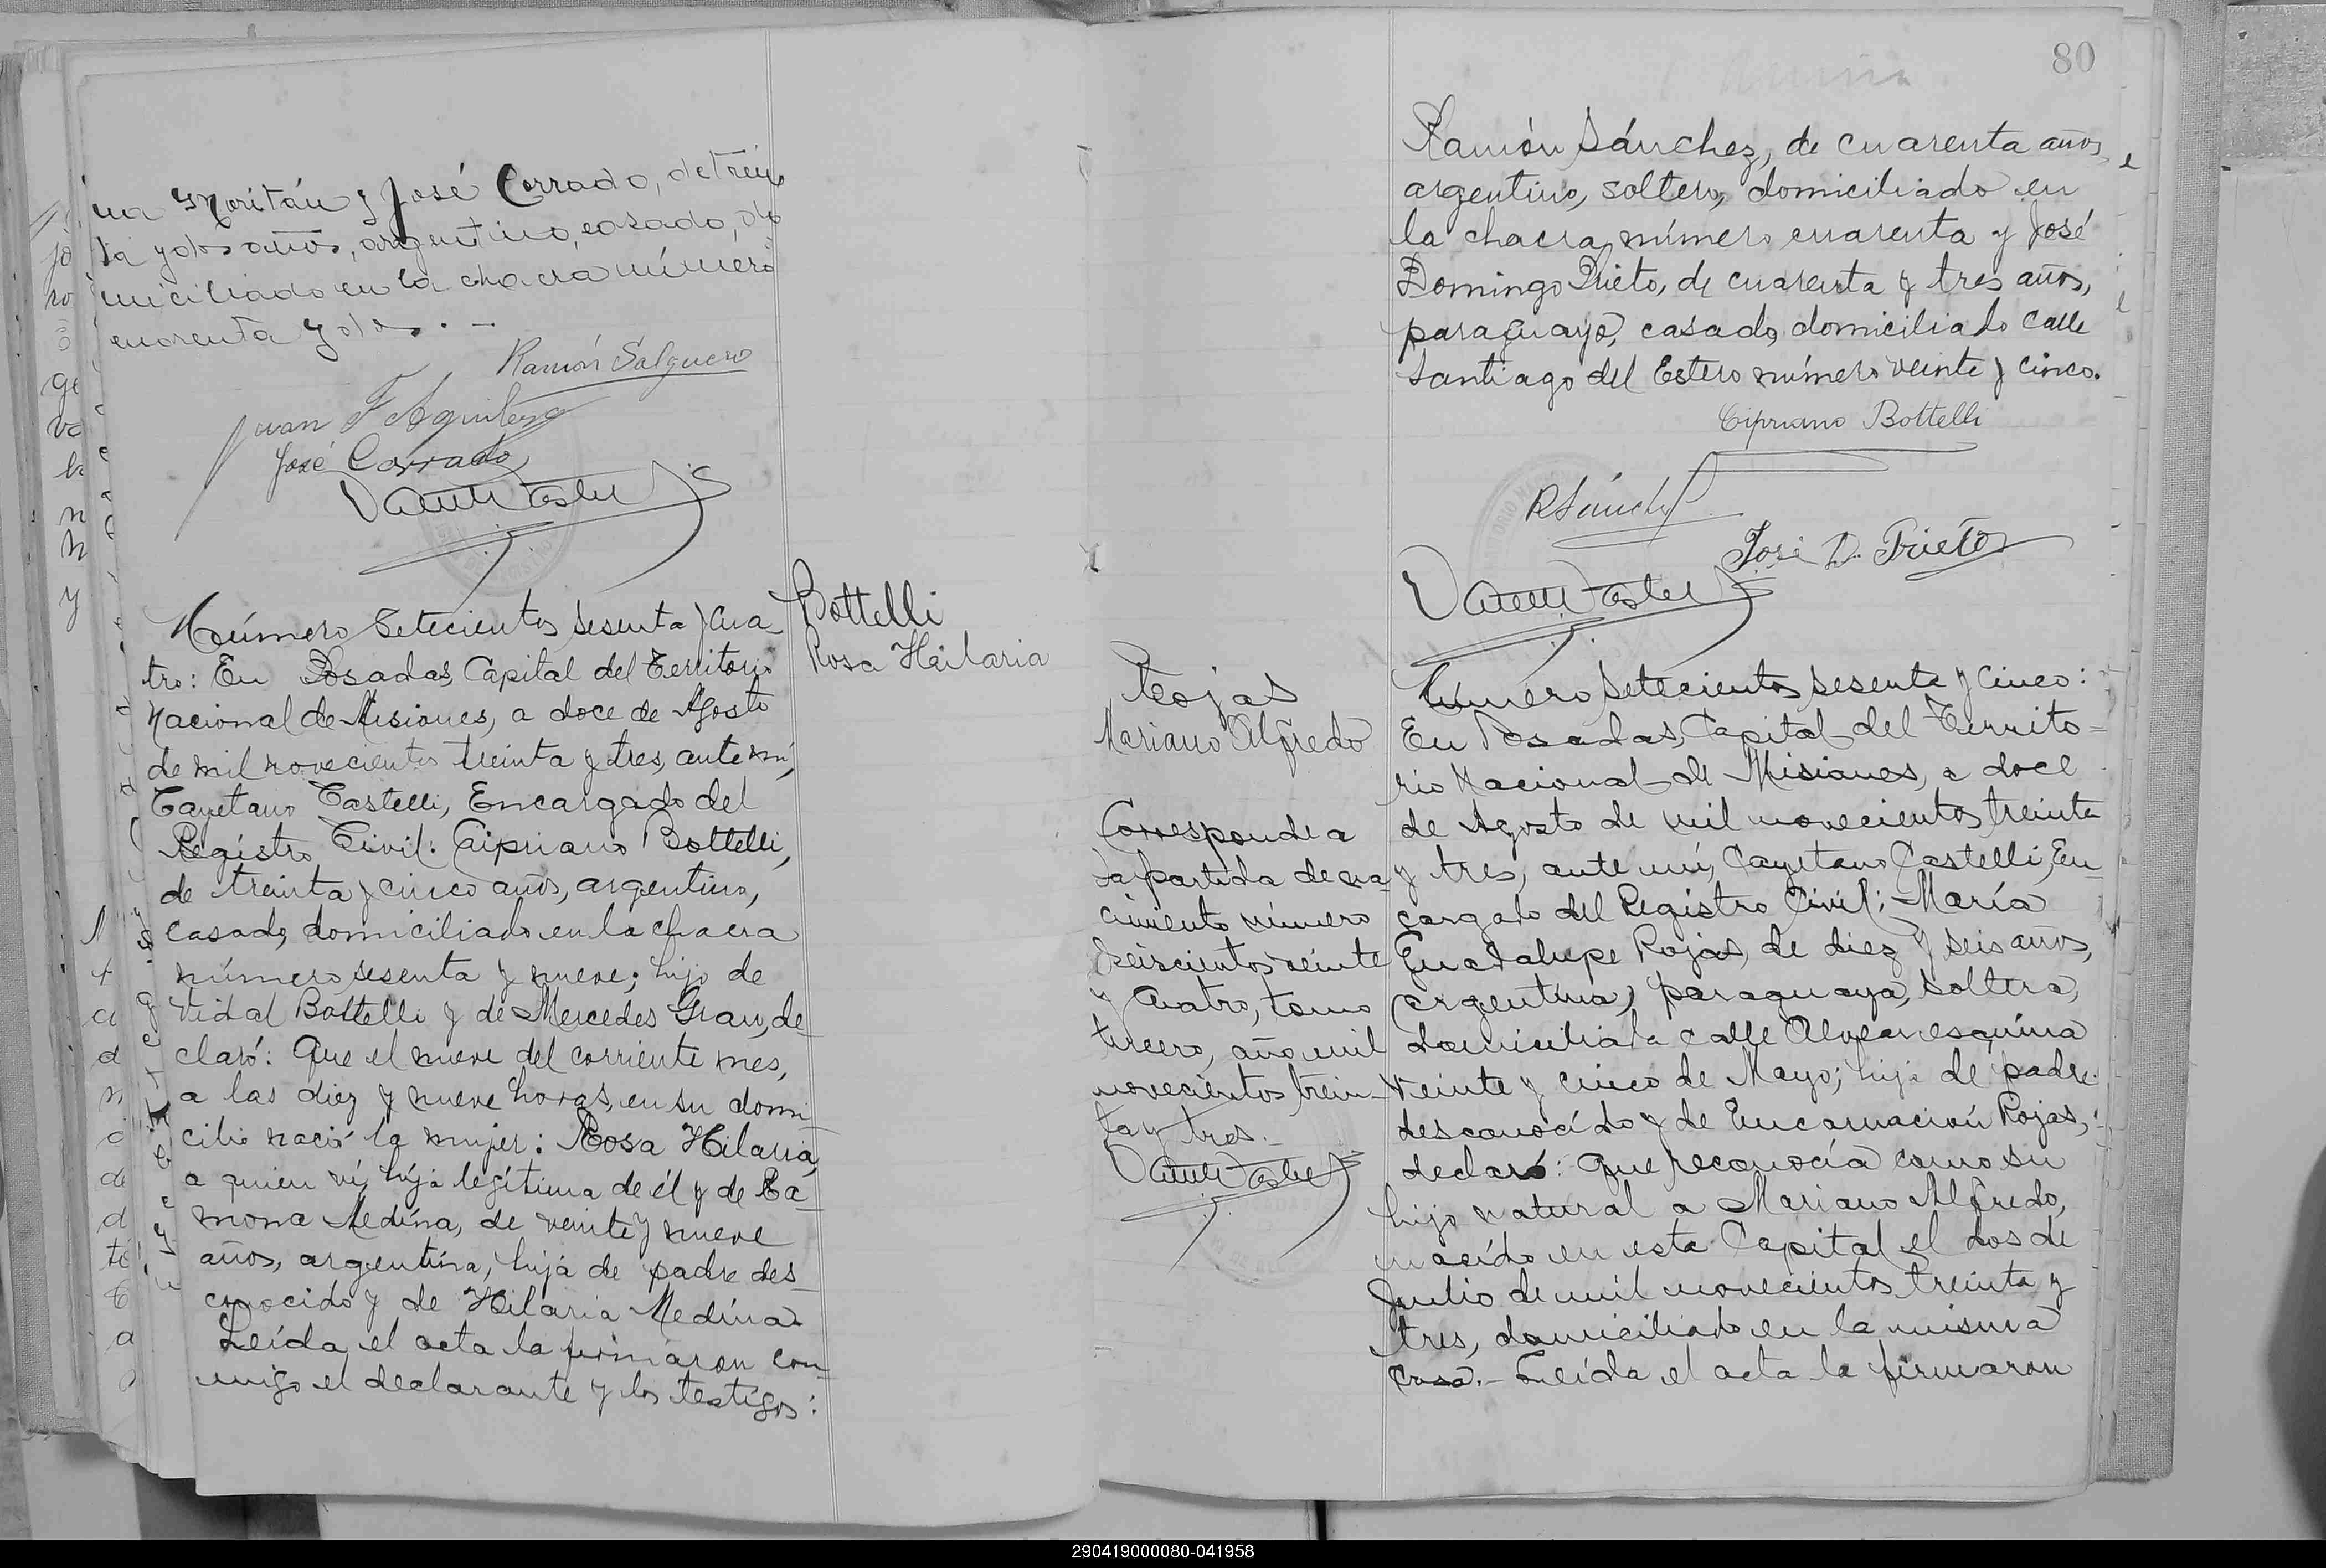 na Moritán y José Corrado, de trein
ta y dos años, argentino, casado, do
miciliado en la chacra número
cuarenta y dos. -
Ramón Salguero
Juan F Aguilera
José Corrado
Número Setecientos sesenta y cua
tro: En Posadas, Capital del Territorio
Nacional de Misiones, a doce de Agosto
de mil novecientos treinta y tres, ante mí,
Cayetano Castelli, Encargado del
Registro Civil: Cipriano Bottelli,
de treinta y cinco años, argentino,
casado, domiciliado en la chacra
número sesenta y nueve; hijo de
Vidal Bottelli y de Mercedes Grau, de
claró: Que el nueve del corriente mes,
a las diez y nueve horas, en su domi
cilio nació la mujer: Rosa Hilaria,
a quien ví, hija legítima de él y de Ra-
mona Medína, de veinte y nueve
años, argentína, hija de padre des
conocido y de Hilaria Medína.
Leída el acta la firmaron con
migo el declarante y los testigos:
Bottelli
Rosa Hilaria
80
Ramón Sánchez, de cuarenta años,
argentino, soltero, domiciliado en
la chacra número cuarenta y José
Domingo Prieto, de cuarenta y tres años,
paraguayo, casado, domiciliado calle
Santiago del Estero número veinte y cinco.
Cipriano Bottelli
R Sánchez
José D. Prieto
Rojas
Mariano Alfredo
Corresponde a
la partida de na-
cimiento número
seiscientos veinte
y cuatro, tomo
tercero, año mil
novecientos trein-
ta y tres.-
Número Setecientos sesenta y cinco:
En Posadas, Capital del Territo-
rio Nacional de Misiones, a doce
de Agosto de mil novecientos treinta
y tres, ante mí, Cayetano Castelli, En-
cargado del Registro Civil; María
Guadalupe Rojas, de diez y seis años,
(argentina) paraguaya, soltera,
domiciliada calle Alvear esquina
Veinte y cinco de Mayo; hija de padre
desconocido y de Encarnación Rojas,
declaró: Que reconocía como su
hijo natural a Mariano Alfredo,
nacido en esta Capital el dos de
Julio de mil novecientos treinta y
tres, domiciliado en la misma
casa.- Leída el acta la firmaron
290419000080-041958